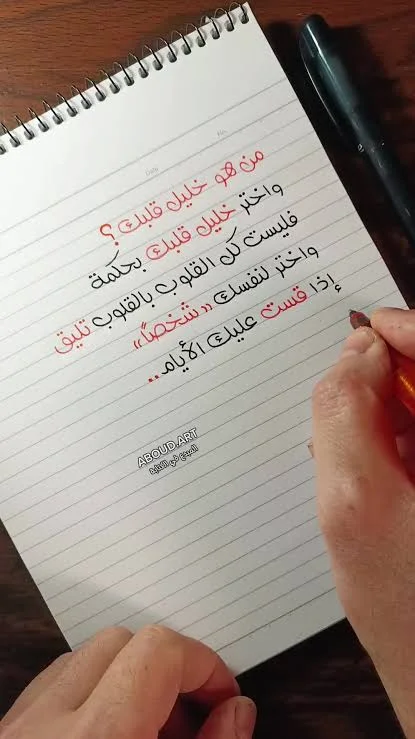 No.
Date
من هو خليل قلبك ؟
واختر خليل قلبك بحكمة
فليست كل القلوب بالقلوب تليق
واختر لنفسك «شخصاً»
إذا قست عليك الأيام..
ABOUD.ART
المبدع في الكتابة